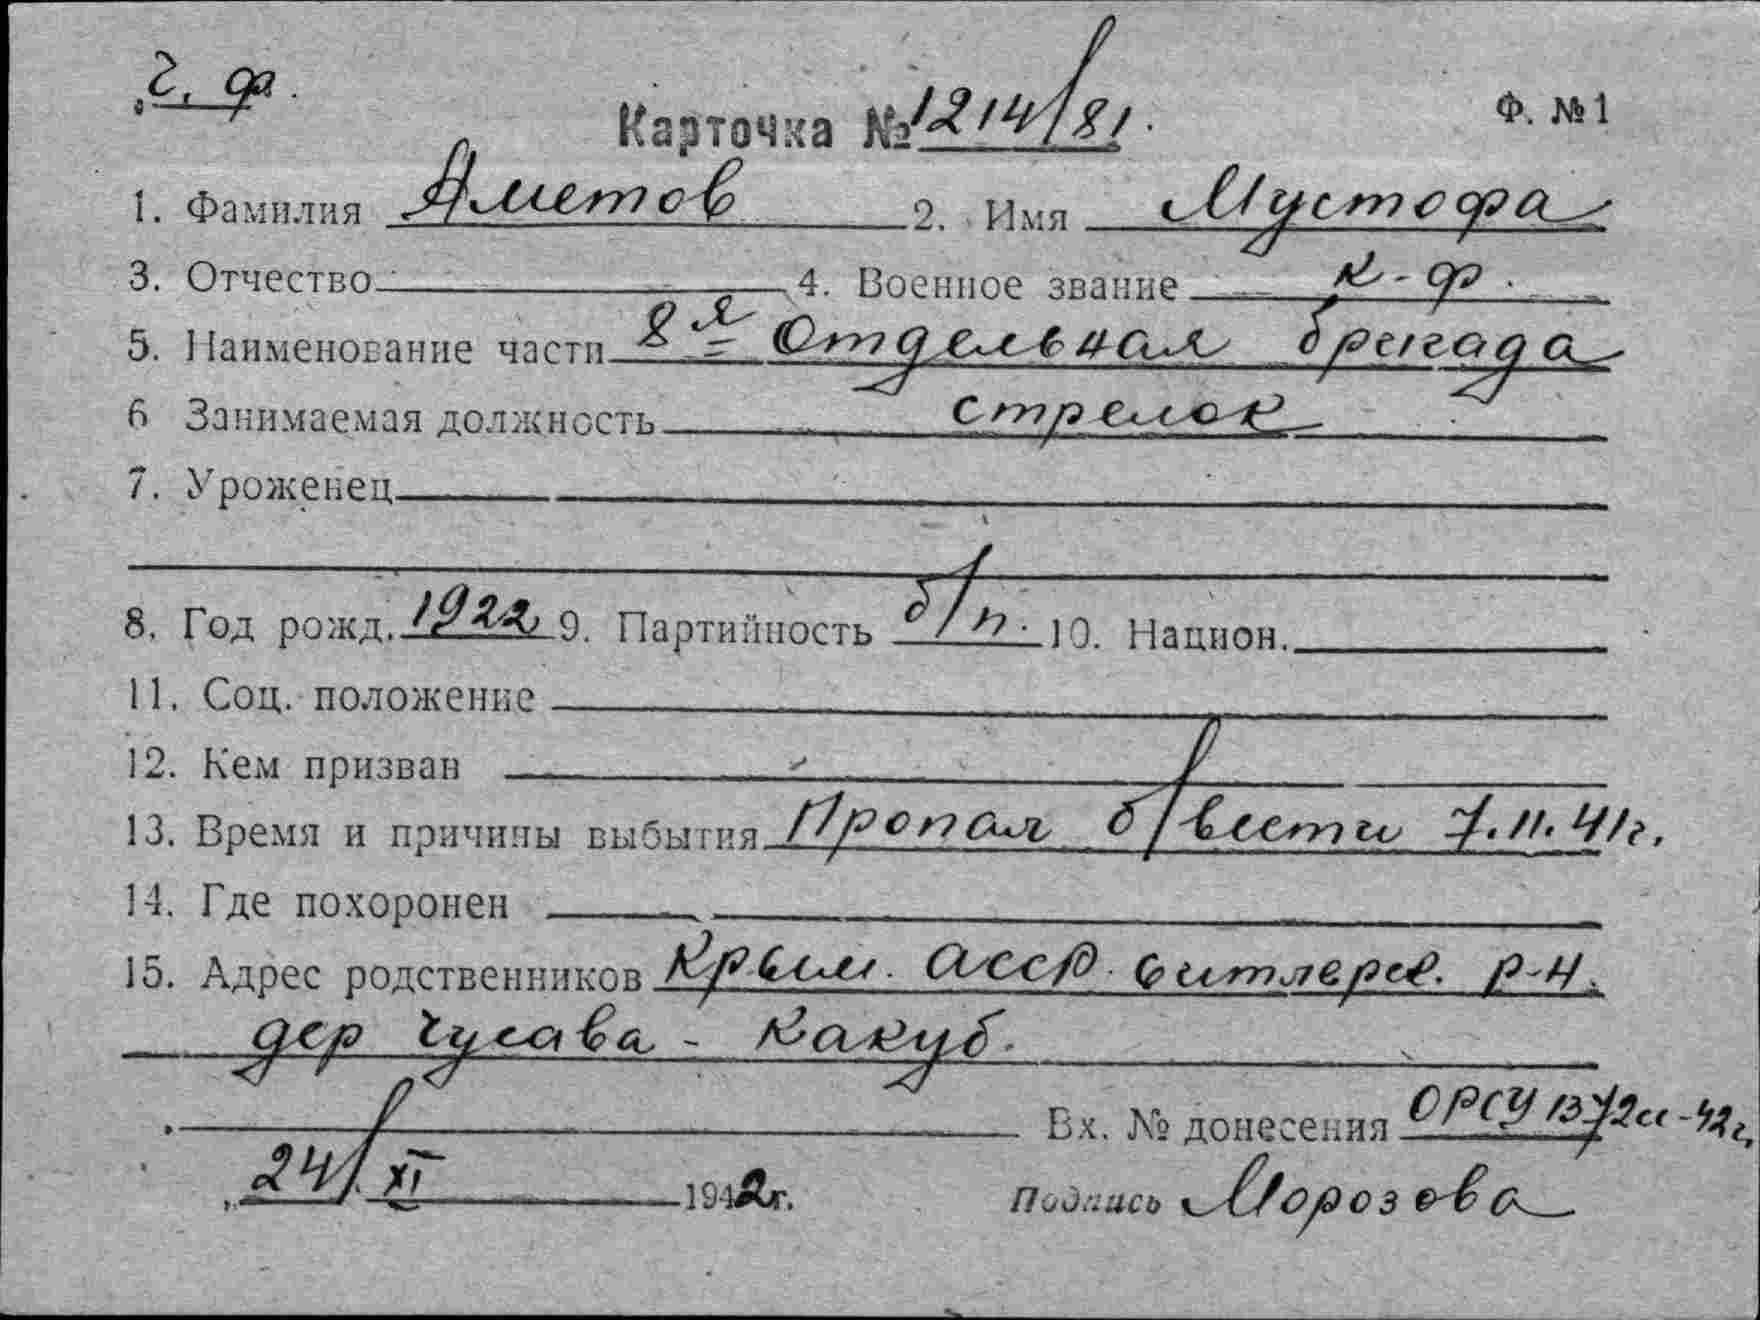 Ч. Ф.
Карточка № 1214/81. Ф. №1
1. Фамилия Аметов 2. Имя Мустофа
3. Отчество 4. Военное звание к-ф.
5. Наименование части 8я Отдельная бригада
6 Занимаемая должность стрелок
7. Уроженец
8. Год рожд. 1922 9. Партийность б/п. 10. Национ.
11. Соц. положение
12. Кем призван
13. Время и причины выбытия Пропал б/вести 7.11.41г.
14. Где похоронен
15. Адрес родственников Крым. АССР. р-н.
дер - Какуб.
Вх. № донесения ОРСУ 1372с-42г.
24/XI 1942г. Подпись Морозова